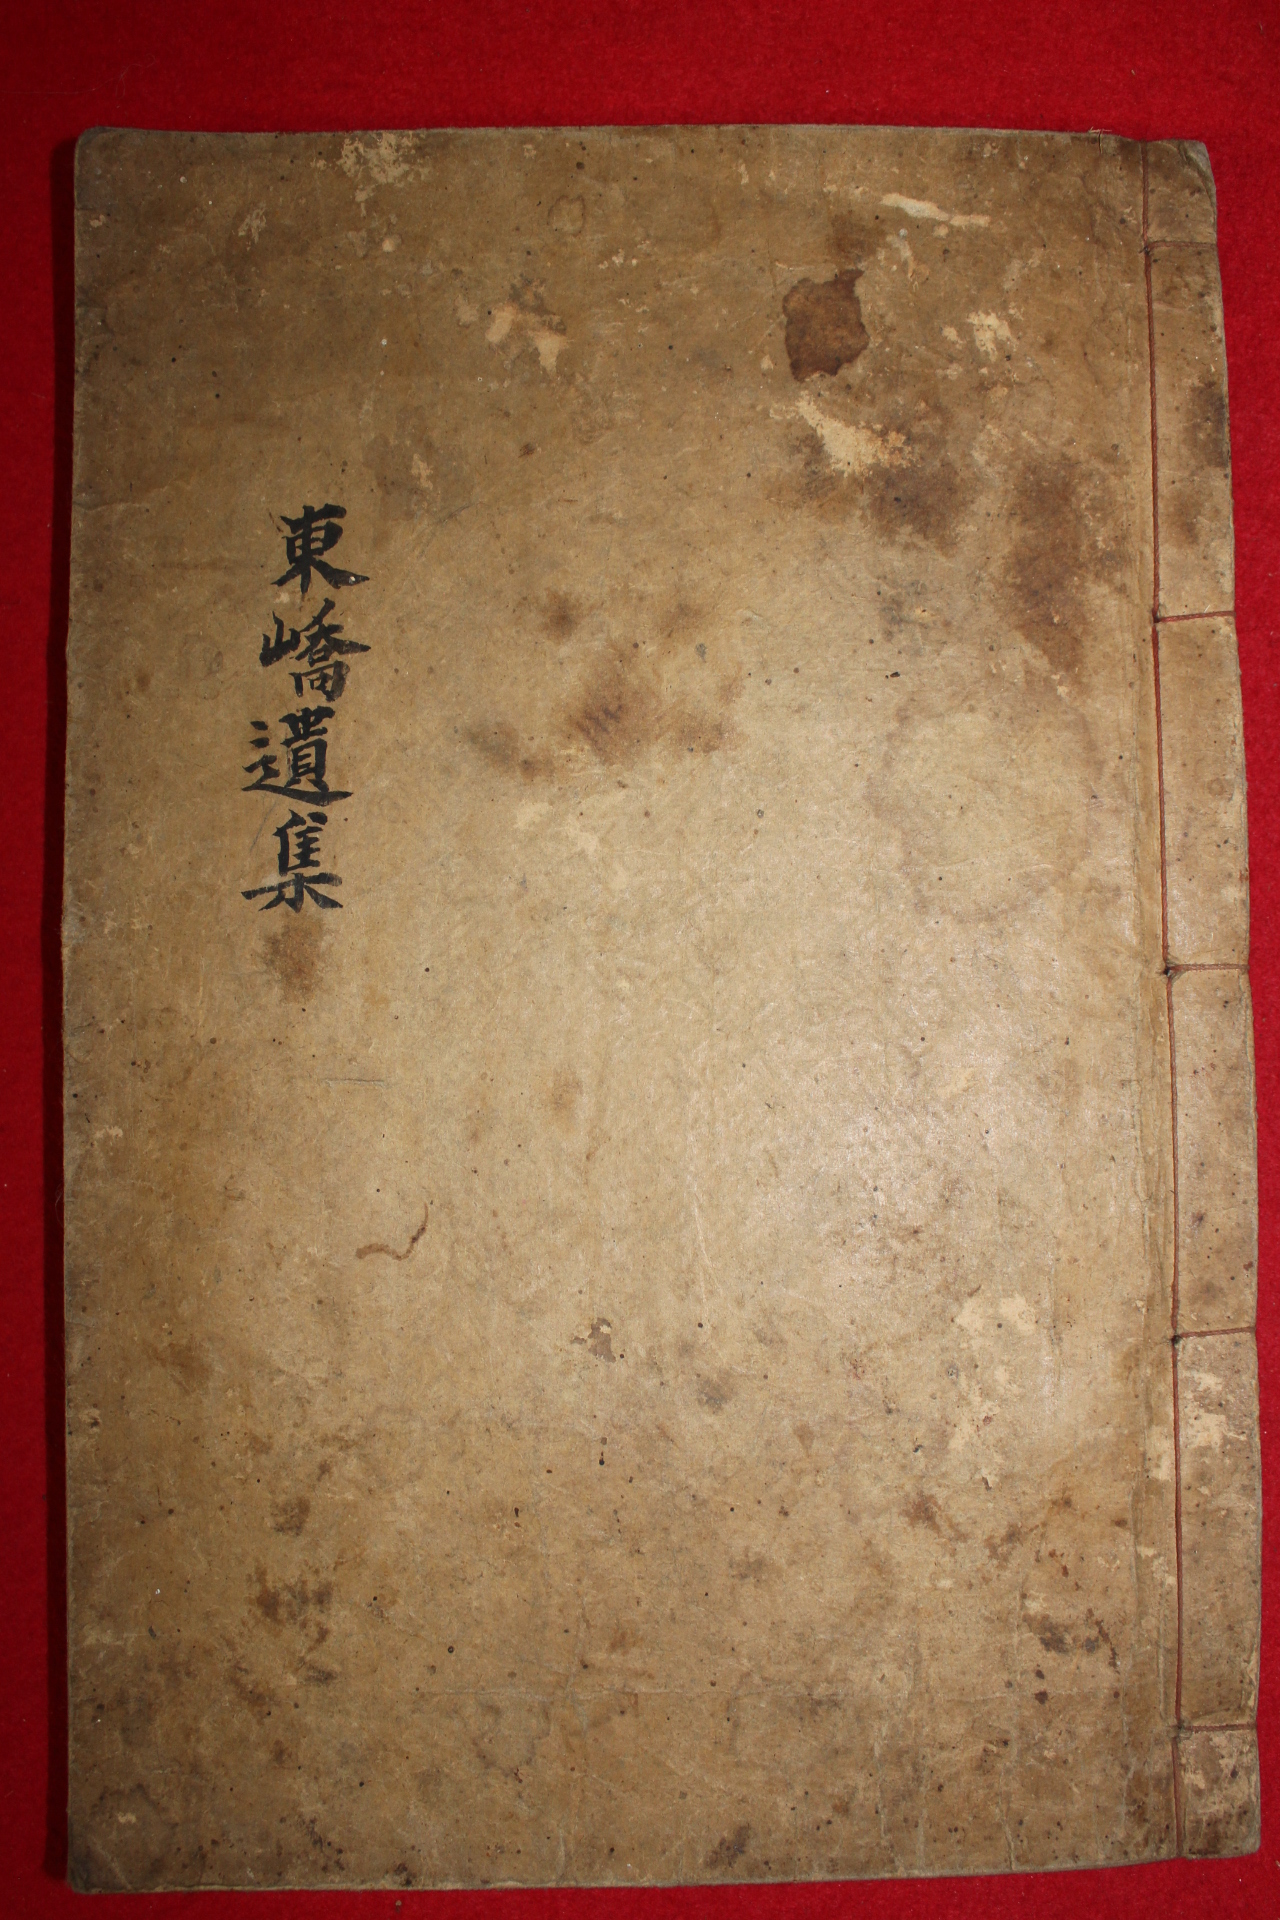 東嶠遺集